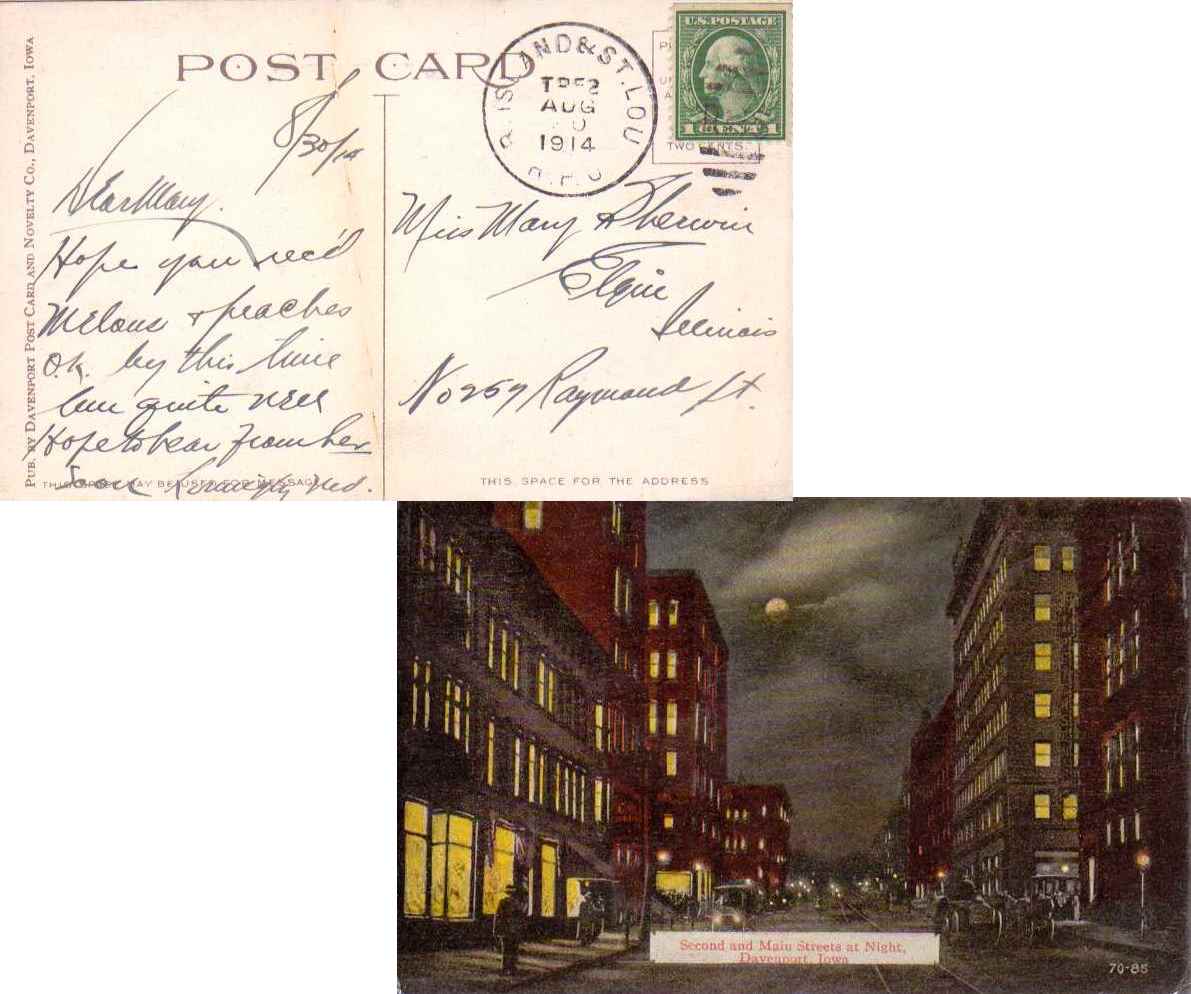 POST CARD
PUB. BY DAVENPORT POST CARD AND NOVELTY CO., DAVENPORT, IOWA
R. ISLAND & ST. LOU
AUG
1914
R.P.O
U.S. POSTAGE
TWO CENTS.
8/30/14
Dear Mary.
Hope you rec'd
Melons & peaches
O.K. by this time
Am quite well
Hope to hear from her
soon
Ned.
THIS SPACE MAY BE USED FOR MESSAGE
Miss Mary Sherwin
Elgin
Illinois
No 259 Raymond St.
THIS SPACE FOR THE ADDRESS
Second and Main Streets at Night,
Davenport, Iowa
70-85